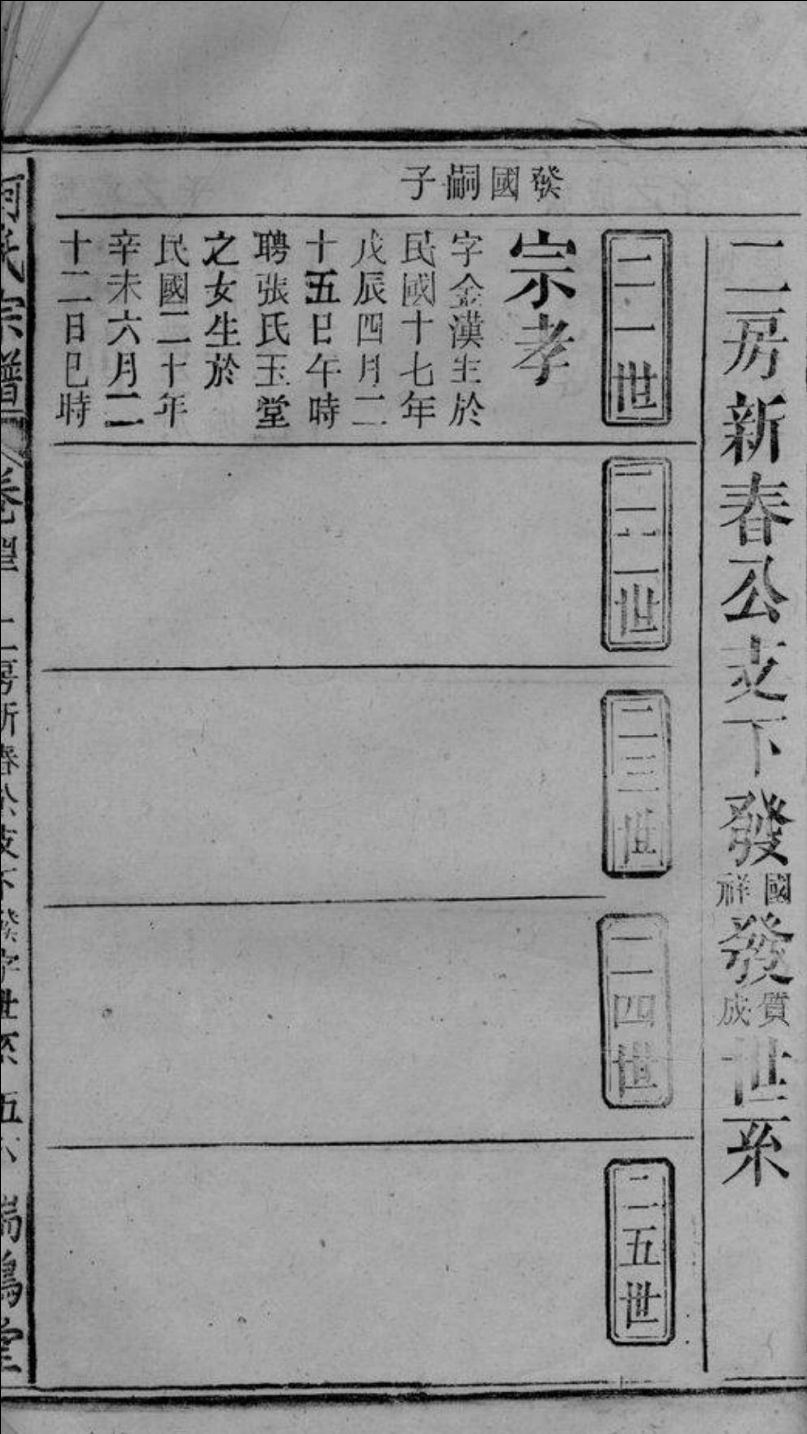 二房新春公支下發國祥發質成世系
二一世
發國嗣子
宗孝
字金漢生於
民國十七年
戊辰四月二
十五日午時
聘張氏玉堂
之女生於
民國二十年
辛未六月二
十二日巳時
二二世
二三世
二四世
二五世
氏宗譜 卷 二房新春公支下發字世系 五 堂